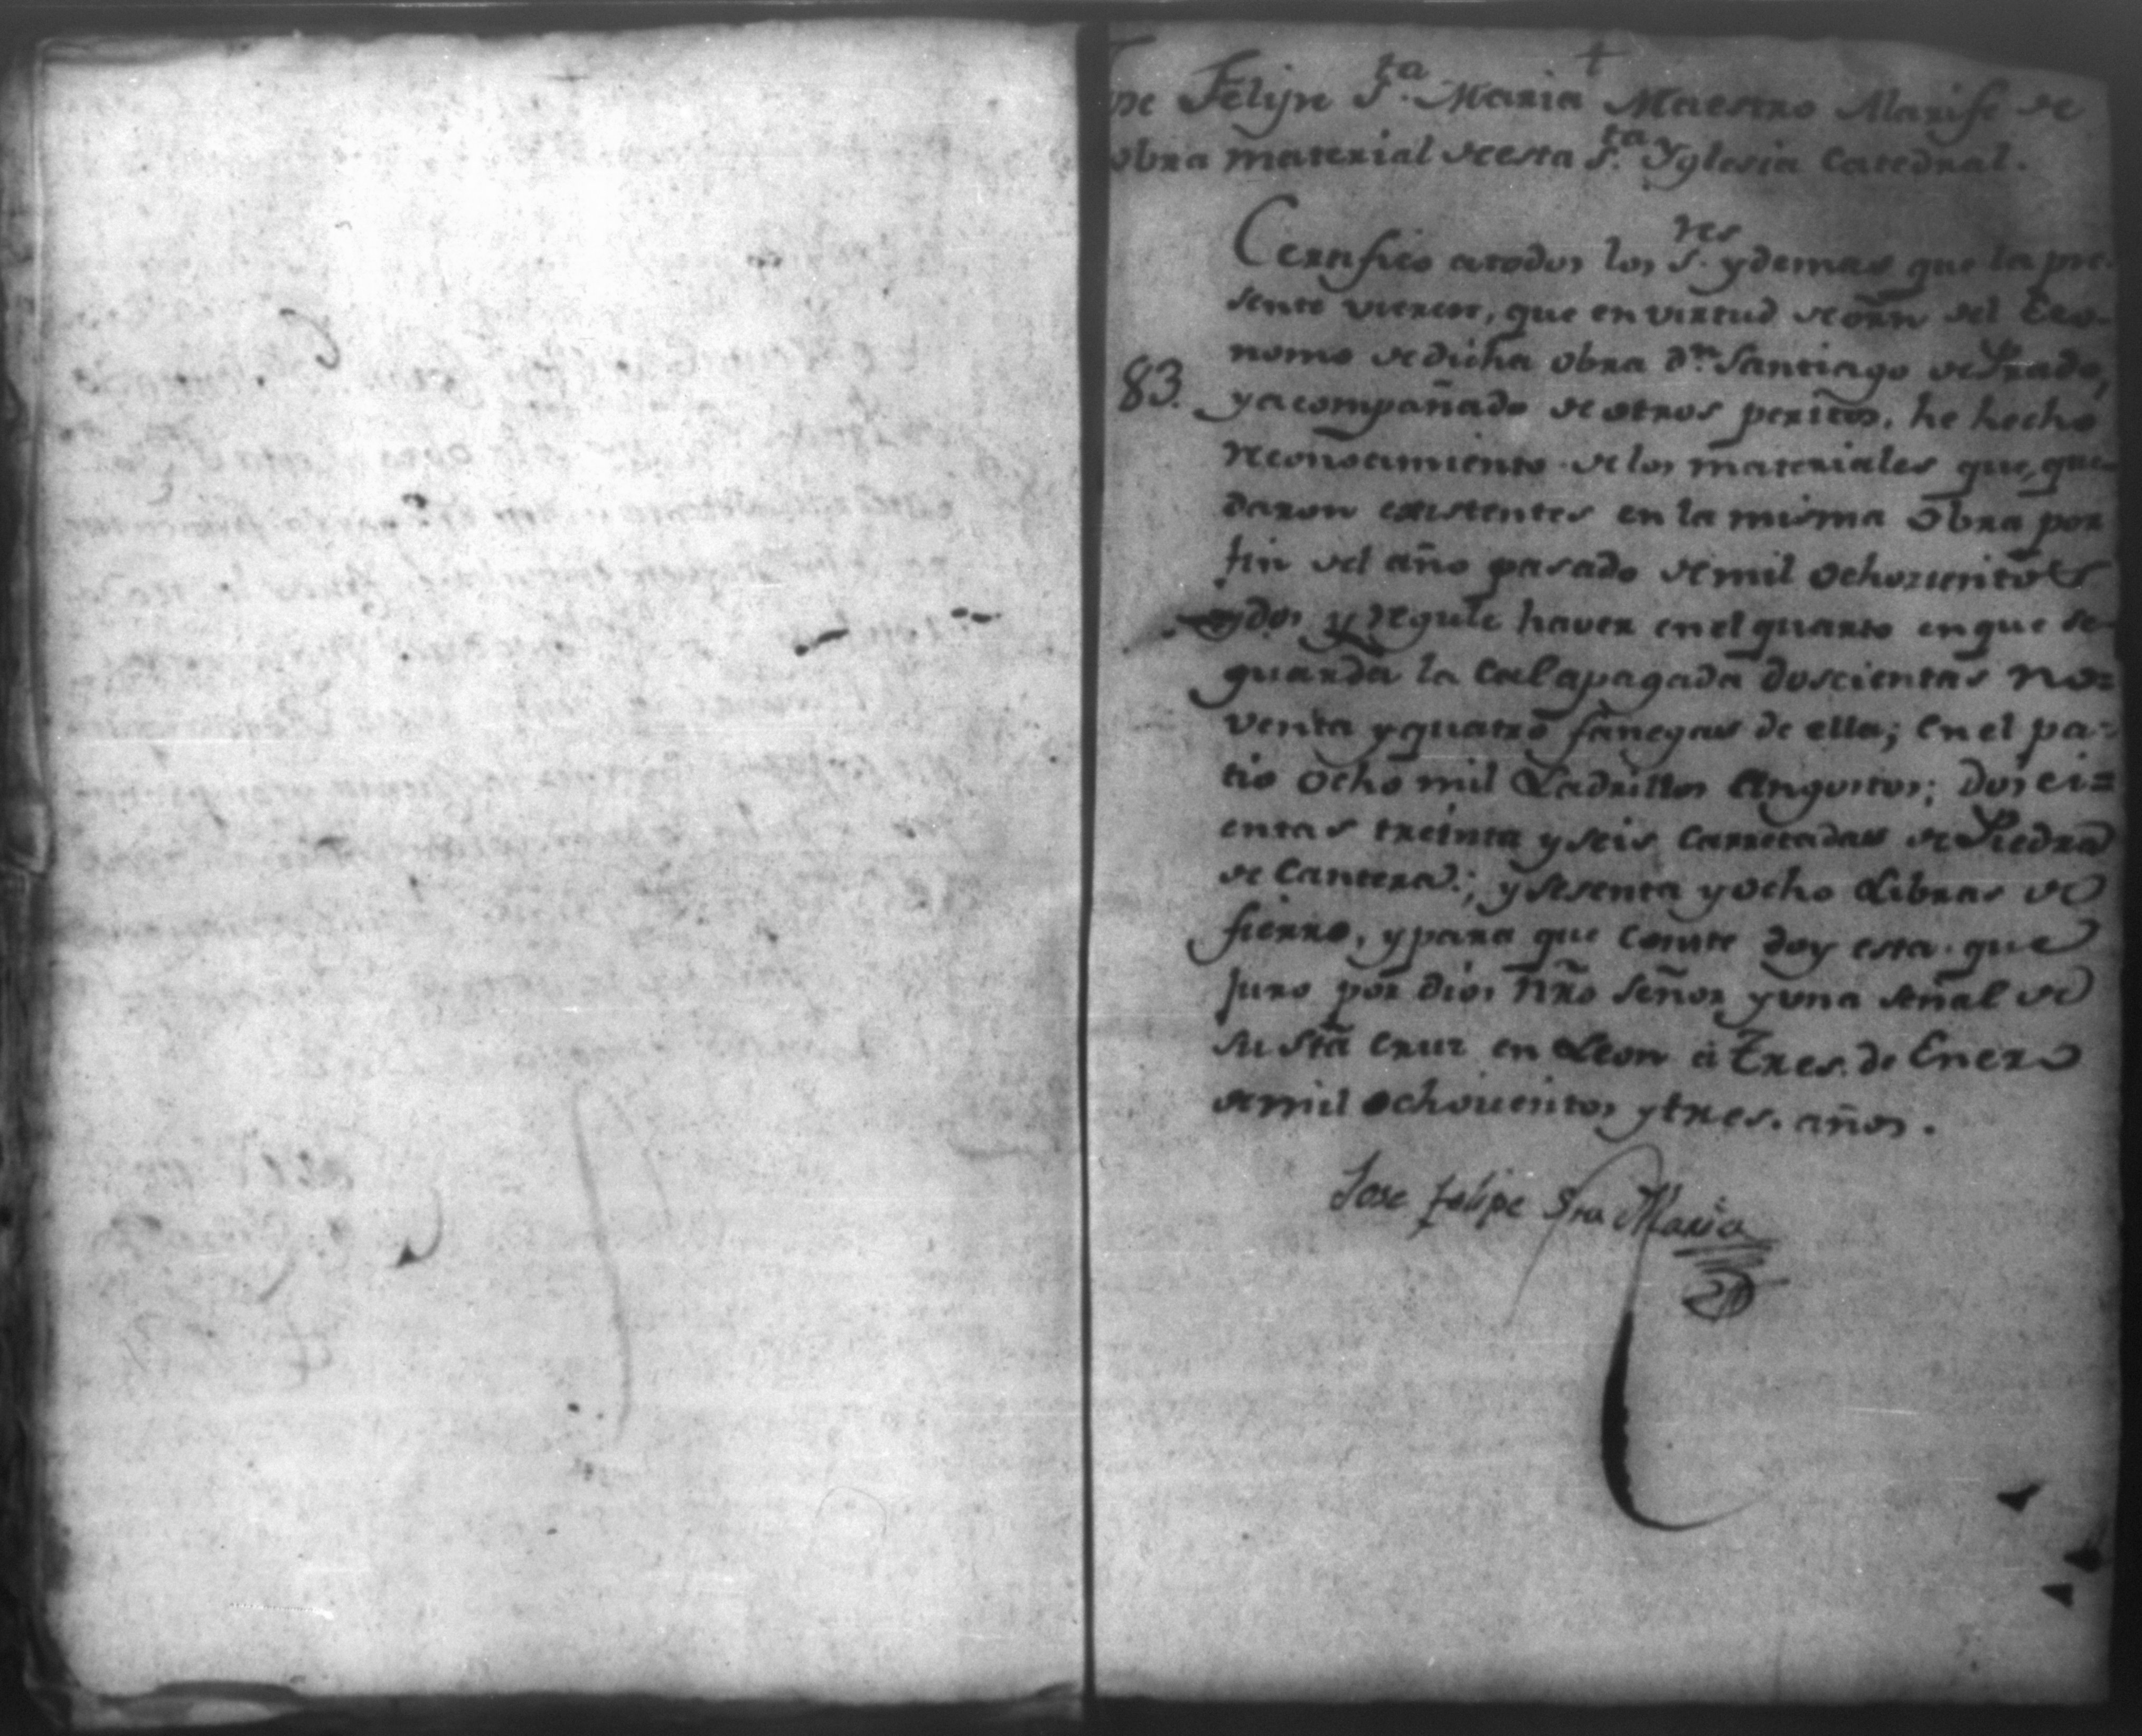 +
Felipe S.ta Maria Maestro Alarife de
obra material de esta S.ta Yglesia Catedral.
Certifico atodos los S.res ydemas que la pre-
sente vieren, que en virtud de orñ del Eco-
nomo de dicha obra d.n Santiago de Prado,
83. yacompañado de otros peritos, he hecho
reconocimiento de los materiales que que-
daron existentes en la misma obra por
fin del año pasado de mil ochozientos
ydos y regule haver en el quarto en que se
guarda la Cal apagada doscientas no=
venta yquatro fanegas de ella; en el pa=
tio ocho mil Ladrillos Angostos; dosci=
entas treinta yseis Carretadas de Piedra
de Cantera; ysesenta yocho Libras de
fierro, ypara que conste doy esta que
juro por dios ñro Señor yuna señal de
su sta Cruz en Leon à tres de Enero
de mil ochocientos ytres años.
Jose felipe Sta Maria